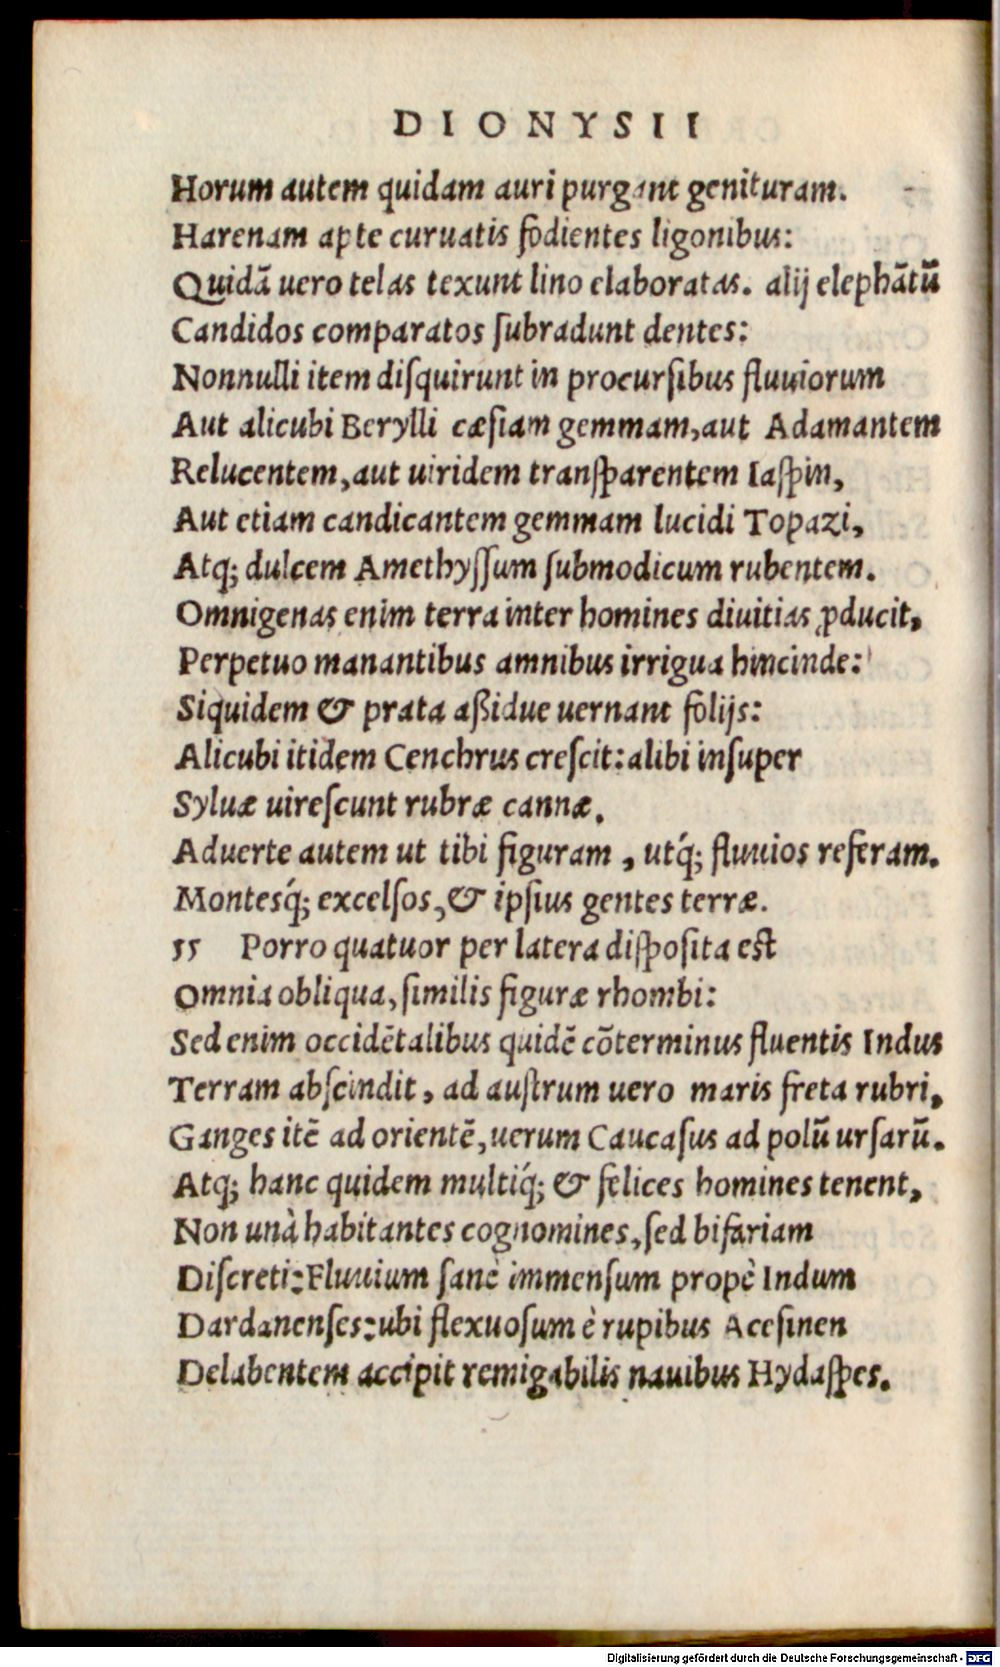 DIONYSII
Horum autem quidam auri purgant genituram.
Harenam apte curuatis fodientes ligonibus:
Quidā uero telas texunt lino elaboratas. alij elephātū
Candidos comparatos ſubradunt dentes:
Nonnulli item diſquirunt in procurſibus fluuiorum
Aut alicubi Berylli cæſiam gemmam, aut Adamantem
Relucentem, aut uiridem tranſparentem Iaſpin,
Aut etiam candicantem gemmam lucidi Topazi,
Atq; dulcem Amethyſſum ſubmodicum rubentem.
Omnigenas enim terra inter homines diuitias ꝓducit,
Perpetuo manantibus amnibus irrigua hincinde:
Siquidem & prata aßidue uernant folijs:
Alicubi itidem Cenchrus creſcit: alibi inſuper
Syluæ uireſcunt rubræ cannæ.
Aduerte autem ut tibi figuram, utq́; fluuios referam.
Montesq́; excelſos, & ipſius gentes terræ.
55 Porro quatuor per latera diſpoſita eſt
Omnia obliqua, ſimilis figuræ rhombi:
Sed enim occidētalibus quidē cōterminus fluentis Indus
Terram abſcindit, ad auſtrum uero maris freta rubri,
Ganges itē ad orientē, uerum Caucaſus ad polū urſarū.
Atq; hanc quidem multiq́; & felices homines tenent,
Non unà habitantes cognomines, ſed bifariam
Diſcreti: Fluuium ſanè immenſum propè Indum
Dardanenſes: ubi flexuoſum è rupibus Aceſinen
Delabentem accipit remigabilis nauibus Hydaſpes.
Digitalisierung gefördert durch die Deutsche Forschungsgemeinschaft - DFG